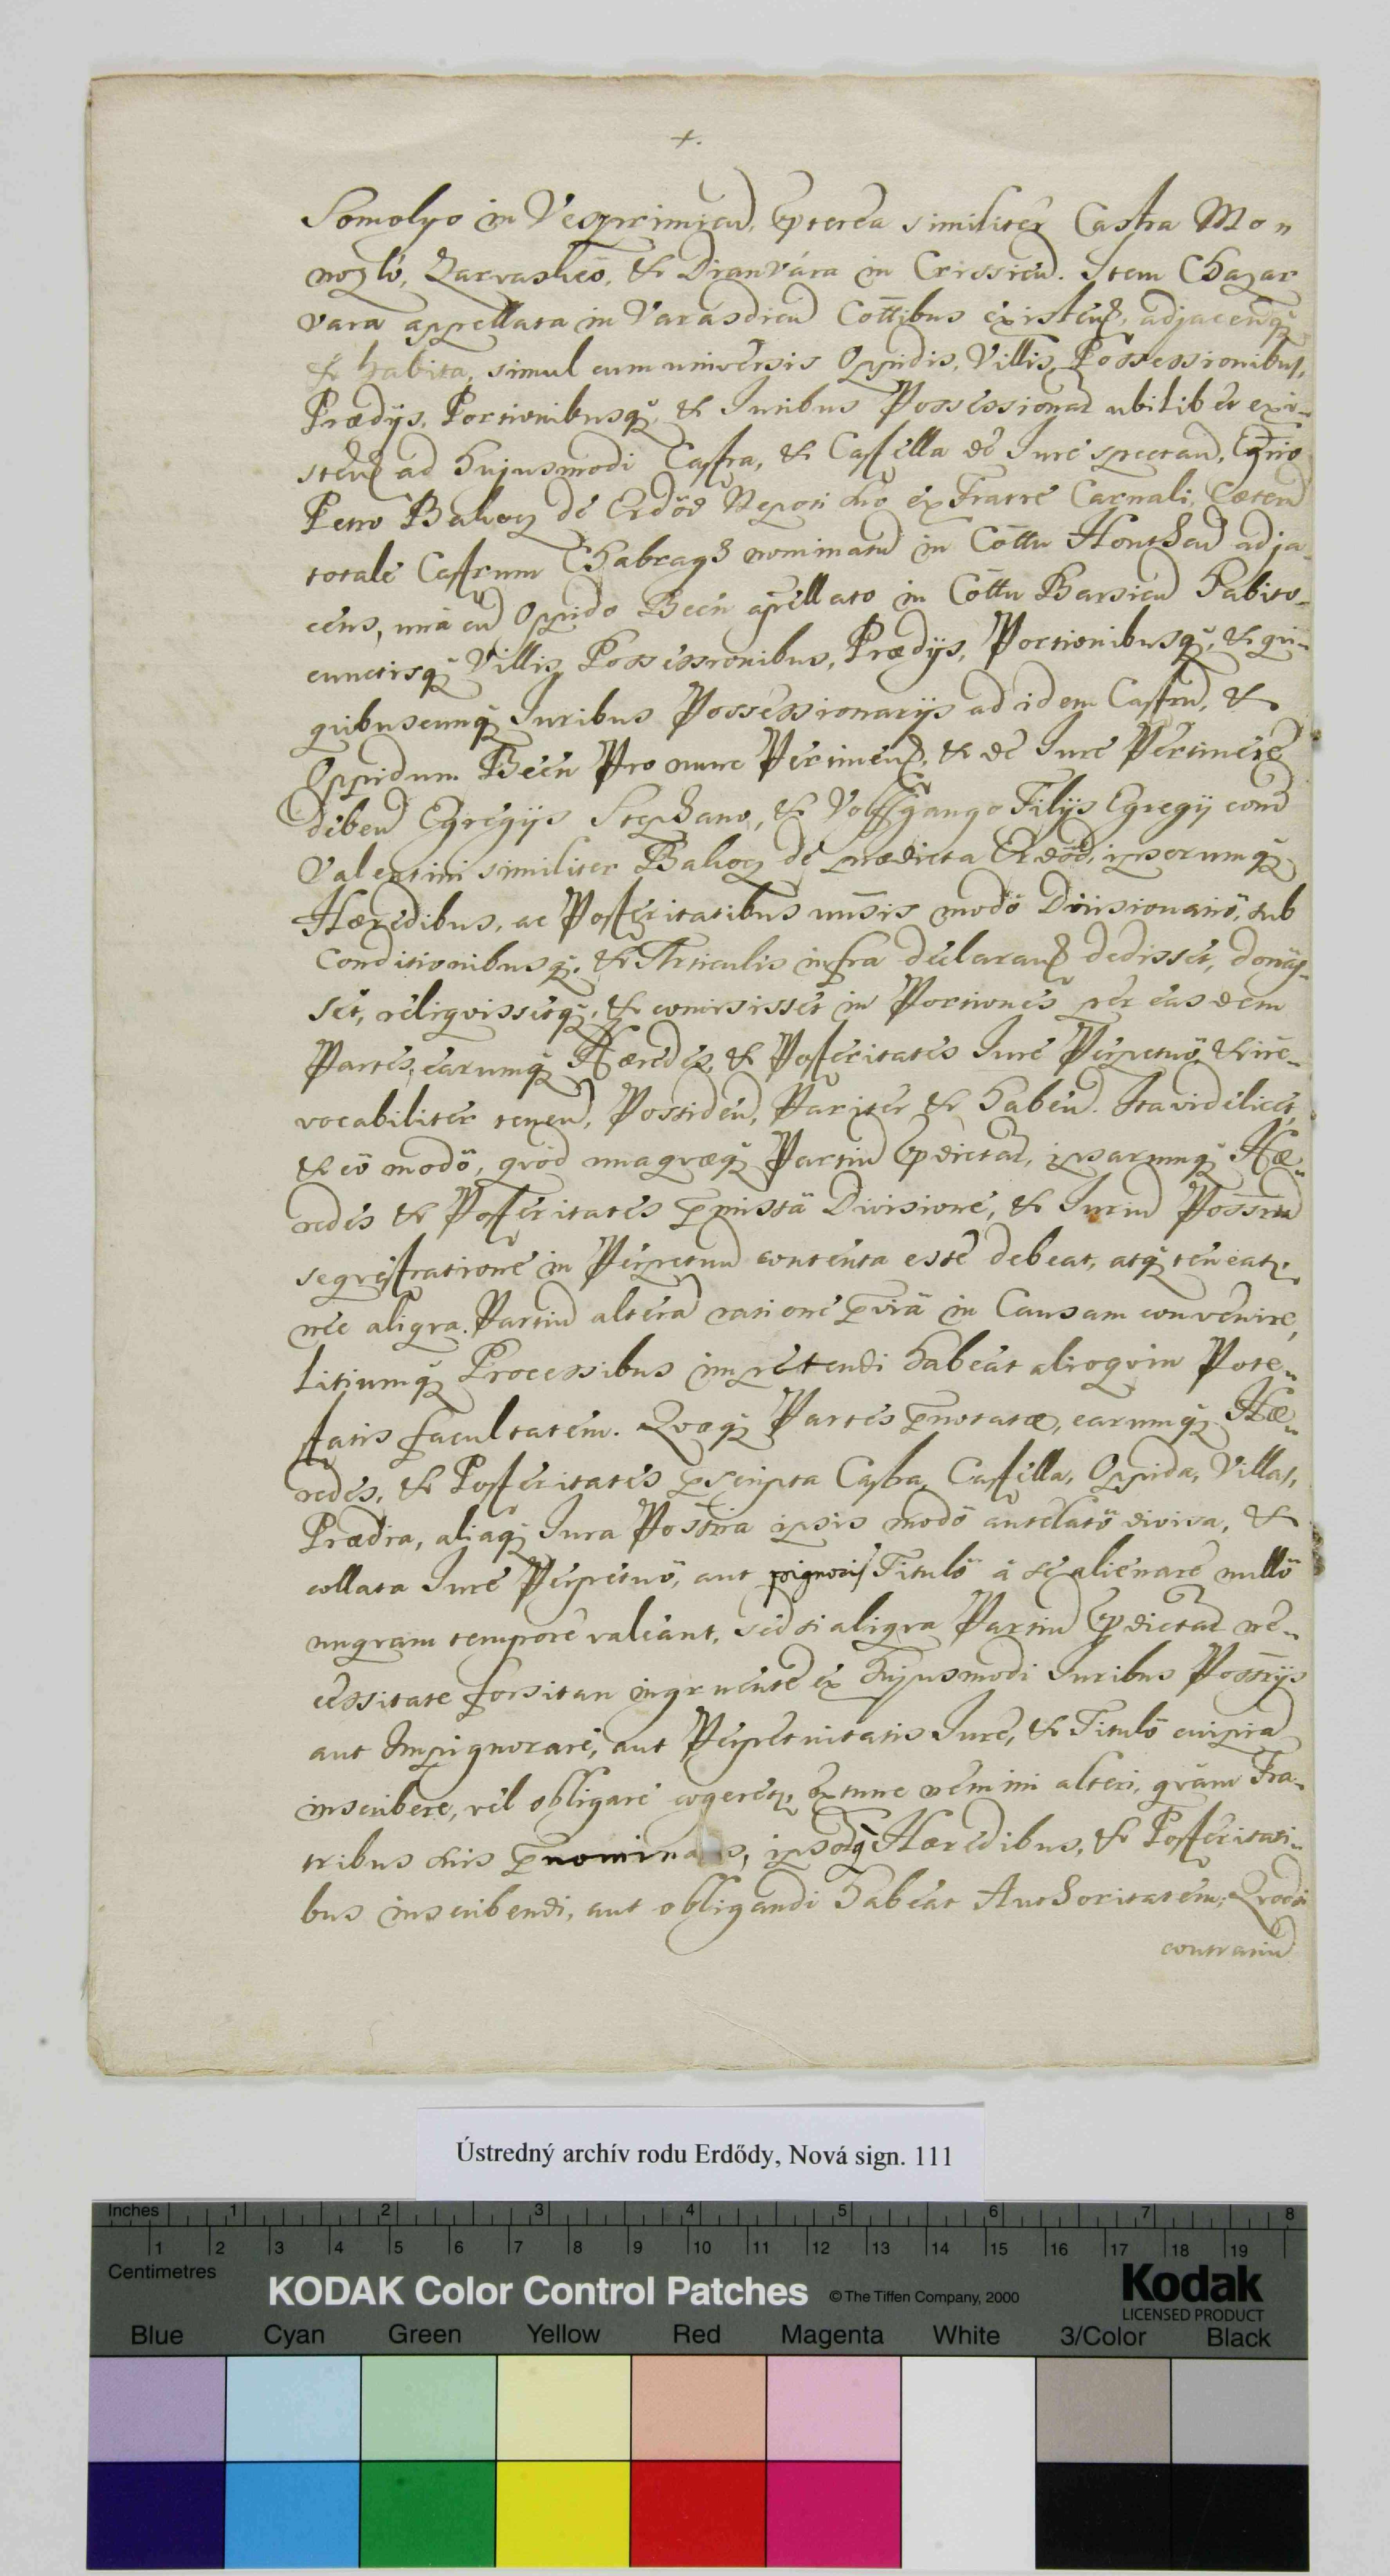 +.
Somolyo in Vesprimien̄, p̄terea similiter Castra Mon
nozló, Zarvaskeö, & Dianvára in Crissien̄. Item Chazar
vara appellata in Varasdien̄ Cott̄ibus existen̄, adjacenq̄
& habita, simul cum universis Oppidis, Villis, Possessionibus,
Prædijs, Portionibusq̄, & Juribus Possessional̄ ubilibet exi-
sten̄ ad hujusmodi Castra, & Castella de Jure spectan̄, Egrīo
Petro Bakocz de Erdöd Nepoti suo ex Fratre Carnali, Cæterū
totale Castrum Chabragh nominatū in Cottu Honthen̄ adja-
cens, unà cū Oppido Been apellato in Cottu Barsien̄ habito-
cunctisq̄ Villis, Possessionibus, Prædijs, Portionibusq̄, & qui-
quibuscunq̄ Juribus Possessionarijs ad idem Castrū, &
Oppidum Been Pro nunc Pertinen̄, & de Jure Pertinere
deben̄ Egregijs Stephano, & Volffgango Filijs Egregij cond̄
Valentini similiter Bakocz de prædicta Erdöd, ipsorumq̄
Hæredibus, ac Posteritatibus un̄sis modò Divisionario, sub
Conditionibusq̄, & Articulis infra declaran̄ dedisset, donas-
set, reliqvissetq̄, & comisisset in Portiones per easdem
Partes, earumq̄ Hæredes, & Posteritates Jure Perpetuo & irre-
vocabiliter tenen̄, Possiden̄, Pariter & haben̄. Ita videlicet,
& eò modò, qvòd unaqvæq̄ Partiū p̄dictar̄, ipsarumq̄ Hæ-
redes & Posteritates p̄missâ Divisione, & Juriū Possr̄iū
seqvestratione in Perpetuū contenta esse debeat, atq̄ teneatr,
nec aliqva Partiū alterā ratione p̄viâ in Causam convenire,
litiumq̄ Processibus impetendi habeat alioqvin Pote-
statis facultatem. Qvæq̄ Partes p̄notatæ, earumq̄ Hæ-
redes, & Posteritates p̄scripta Castra, Castella, Oppida, Villas,
Prædia, aliaq̄ Jura Possr̄ia ipsis modò antelatò divisa, &
collata Jure Perpetuò, aut pignoris Titulò à se alienare nullò
unqvam tempore valeant, sed si aliqva Partiū p̄dictar̄ ne-
cessitate forsitan ingruente ex hujusmodi Juribus Possr̄ijs
aut Impignorare, aut Perpetuitatis Jure, & Titulò cuipiā
inscribere, vel obligare cogeretr, extunc nemini alteri, qvàm Fra-
tribus suis p̄nominatis, ipsorq̄ Hæredibus, & Posteritati-
bus inscribendi, aut obligandi habeat Authoritatem; Qvodsi
contrariū
Ústredný archív rodu Erdődy, Nová sign. 111
Inches 1 2 3 4 5 6 7 8
1 2 3 4 5 6 7 8 9 10 11 12 13 14 15 16 17 18 19
Centimetres
KODAK Color Control Patches © The Tiffen Company, 2000 Kodak
LICENSED PRODUCT
Blue Cyan Green Yellow Red Magenta White 3/Color Black